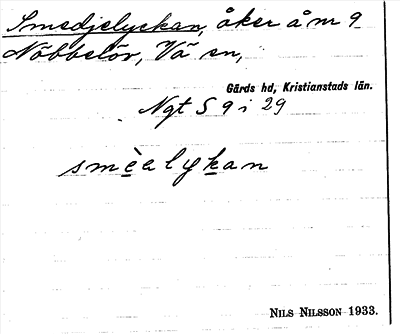 Smedjelyckan, åker å m 9
Nöbbelöv, Vä sn,
Gärds hd, Kristianstads län.
Ngt S 9 i 29
smèelykan
NILS NILSSON 1933.